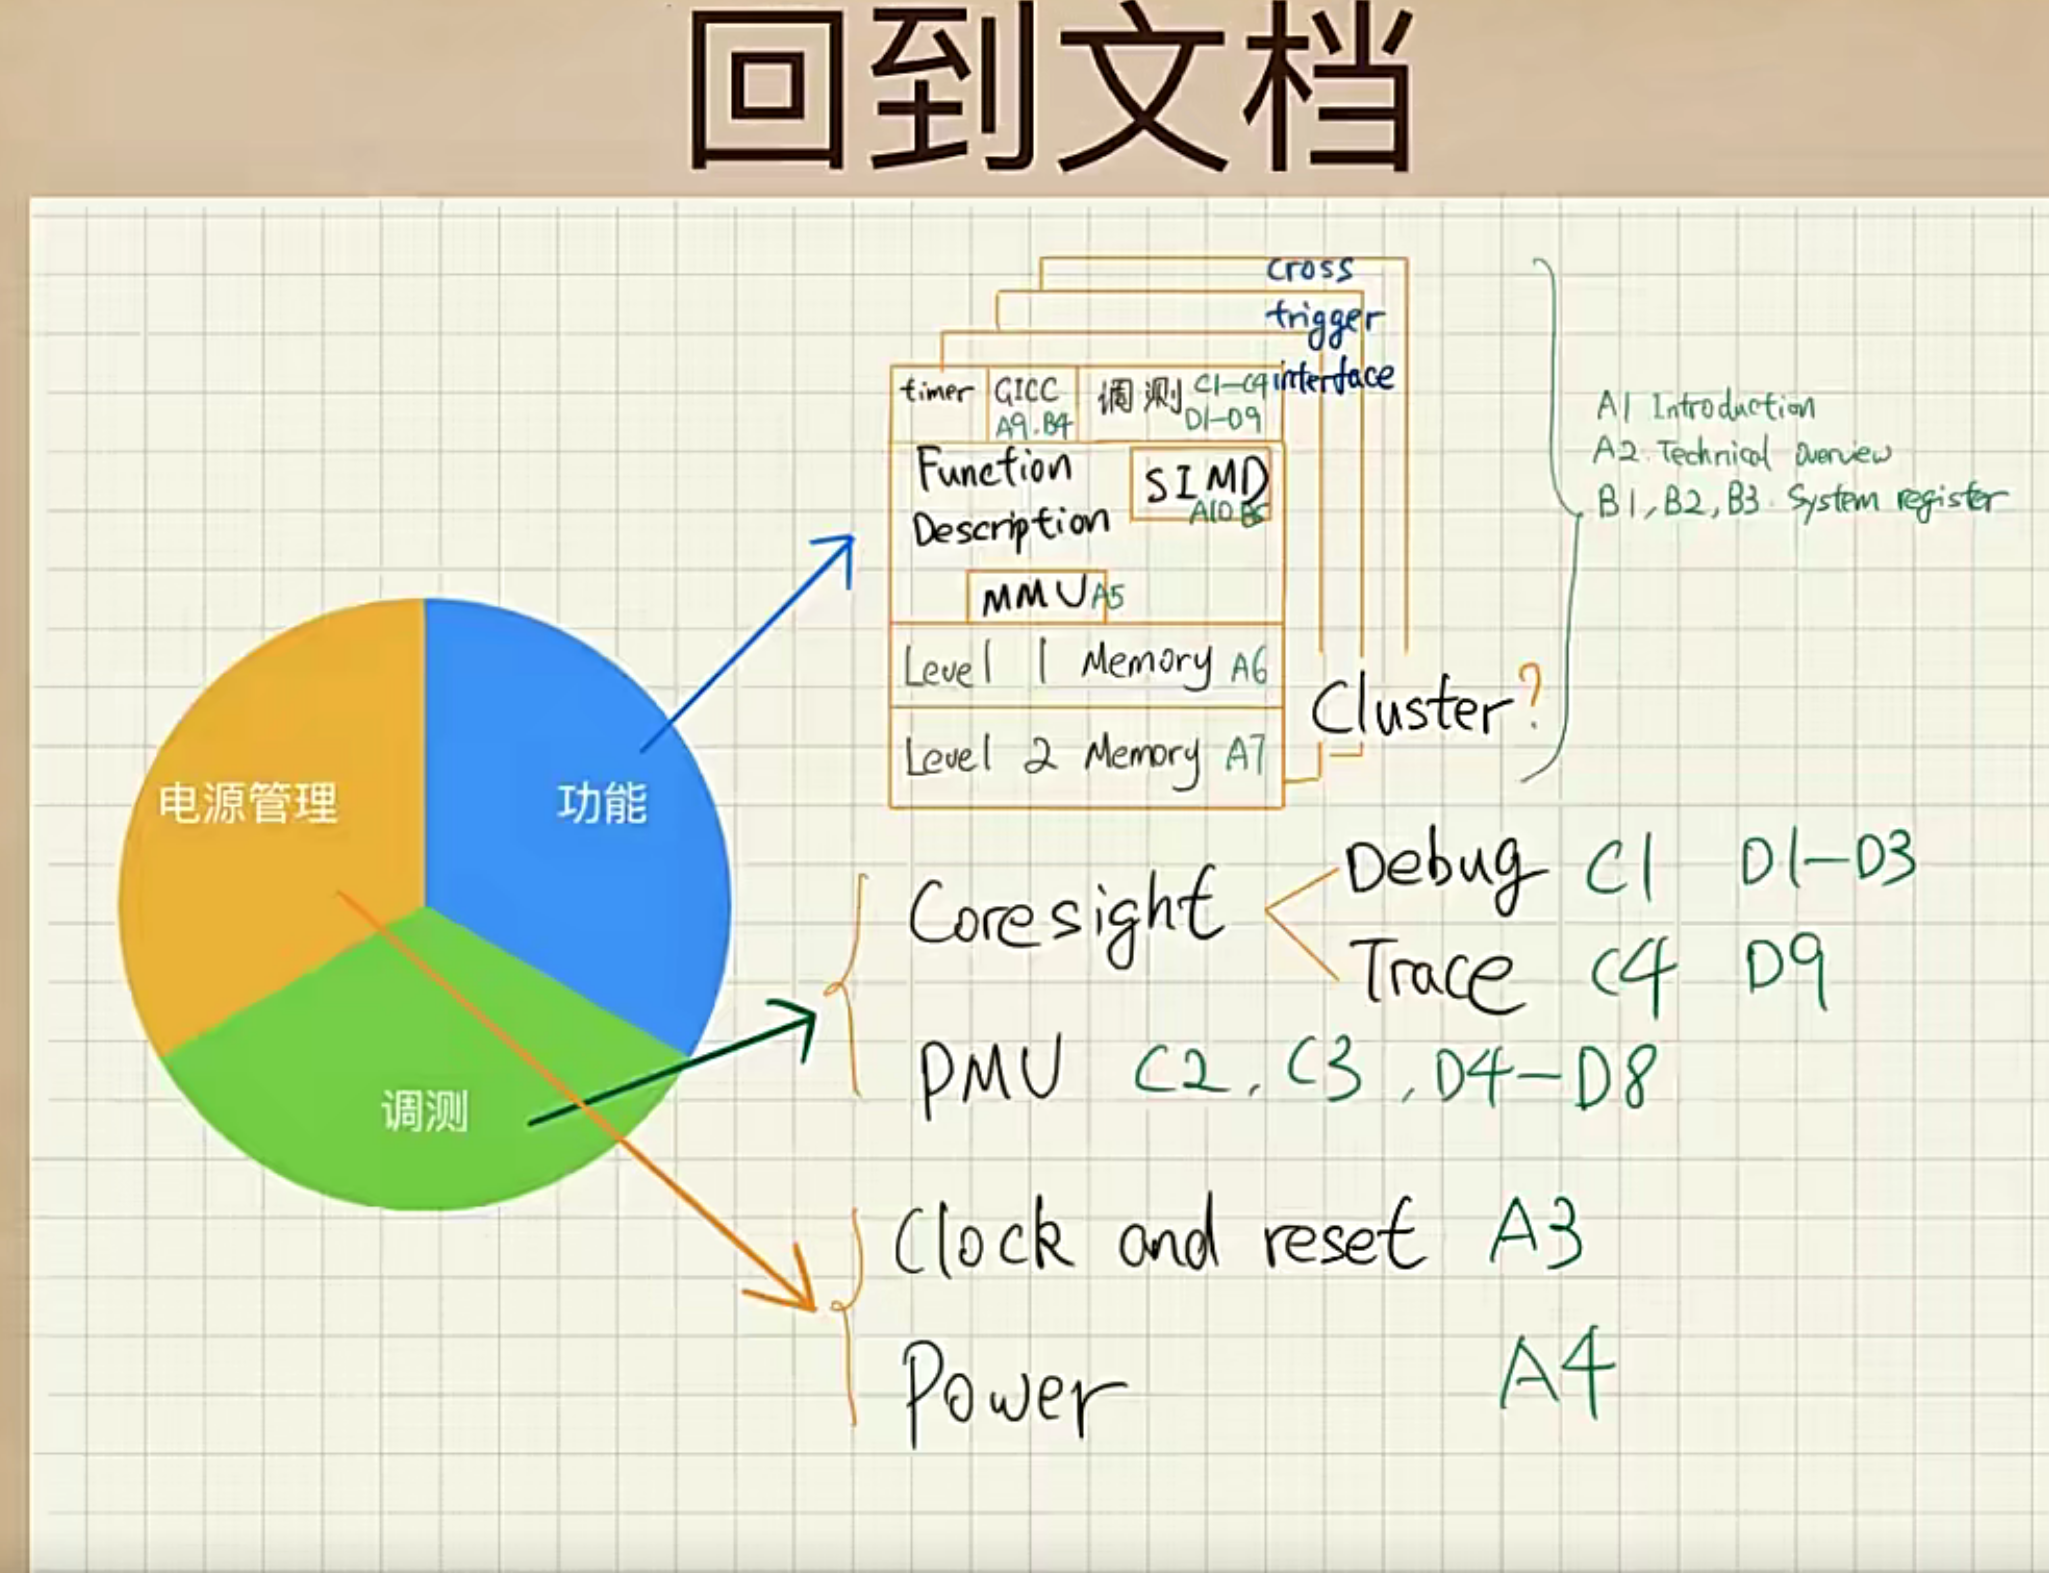 回到文档
cross
trigger
interface
timer GICC 调测 C1-C4
A9.B4 D1-D9
Function
Description
SIMD
A10 B5
MMU A5
Level 1 Memory A6
Level 2 Memory A7
Cluster?
A1 Introduction
A2. Technical Overview
B1, B2, B3. System register
电源管理
功能
调测
Coresight
Debug C1 D1-D3
Trace C4 D9
PMU C2, C3, D4-D8
Clock and reset A3
Power A4